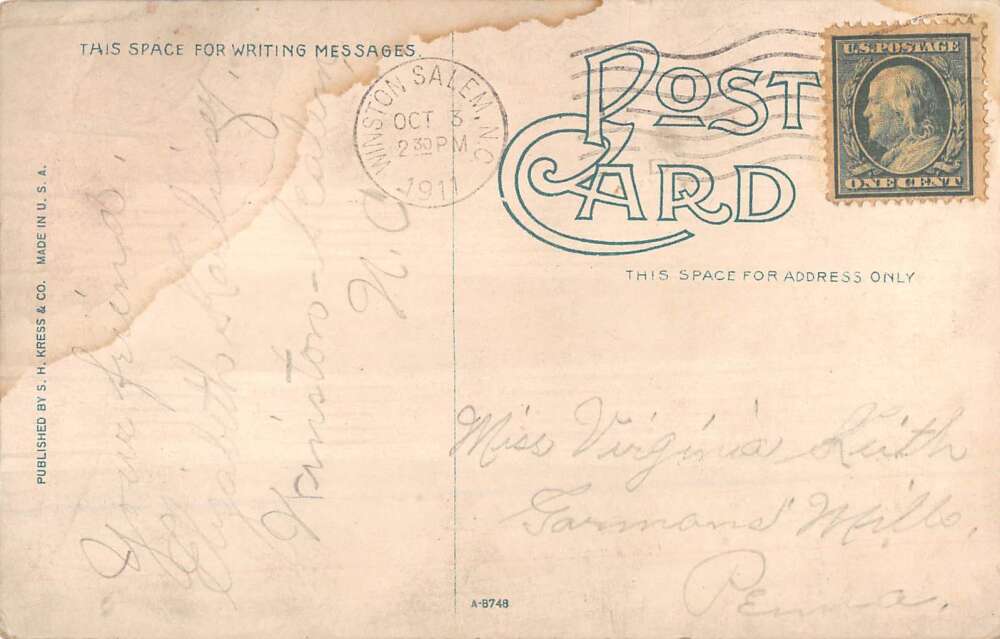 THIS SPACE FOR WRITING MESSAGES.
PUBLISHED BY S. H. KRESS & CO. MADE IN U. S. A.
Your friend
Elizabeth
Winston-Salem
N. C.
WINSTON SALEM, N.C.
OCT 3
2 30 PM
1911
POST
CARD
U.S. POSTAGE
ONE CENT
THIS SPACE FOR ADDRESS ONLY
Miss Virginia Keith
Garmans Mills,
Penna.
A-8748